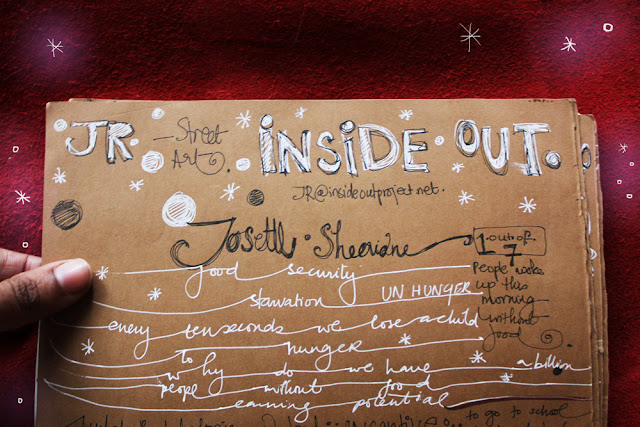 JR. – Street
Art
INSiDE OUT.
JR@insideoutproject.net.
Josette
1 out of
7
people wake
up this
morning
without
food
food security
starvation UN HUNGER
every ten seconds we lose a child
to hunger
why do we have a billion
people without food
earning potential
to go to school